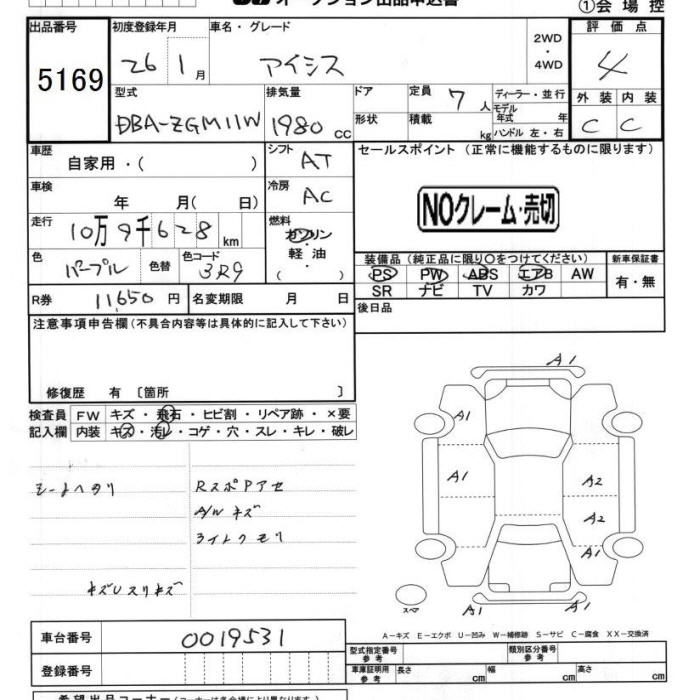 オークション出品申込書
①会場控
出品番号 初度登録年月 車名・グレード 2WD・4WD 評価点
5169 26 1月 アイシス 4
型式 排気量 ドア 定員 7人 ディーラー・並行 外装 内装
DBA-ZGM11W 1980cc 形状 積載 kg モデル年式 年 ハンドル 左・右 C C
車歴 自家用・( ) シフト AT セールスポイント(正常に機能するものに限ります)
車検 年 月( 日) 冷房 AC
NOクレーム・売切
走行 10万9千628km 燃料 ガソリン 軽油 ( )
色 パープル 色替 色コード 3R9
装備品(純正品に限り○をつけてください) 新車保証書
PS PW ABS エアB AW 有・無
SR ナビ TV カワ
R券 11,650円 名変期限 月 日 後日品
注意事項申告欄(不具合内容等は具体的に記入して下さい)
修復歴 有 〔箇所 〕
検査員 FW キズ・飛石・ヒビ割・リペア跡・×要
記入欄 内装 キズ・汚レ・コゲ・穴・スレ・キレ・破レ
シートヘタリ RスポPアセ
A/Wキズ
ライトクモリ
キズUスリキズ
A1
A1
A1 A2
A2
A1
A1 A1
スペア
A-キズ E-エクボ U-凹み W-補修跡 S-サビ C-腐食 XX-交換済
車台番号 0019531 型式指定番号 参考 類別区分番号 参考
登録番号 車庫証明用 参考 長さ cm 幅 cm 高さ cm
希望出品コーナー